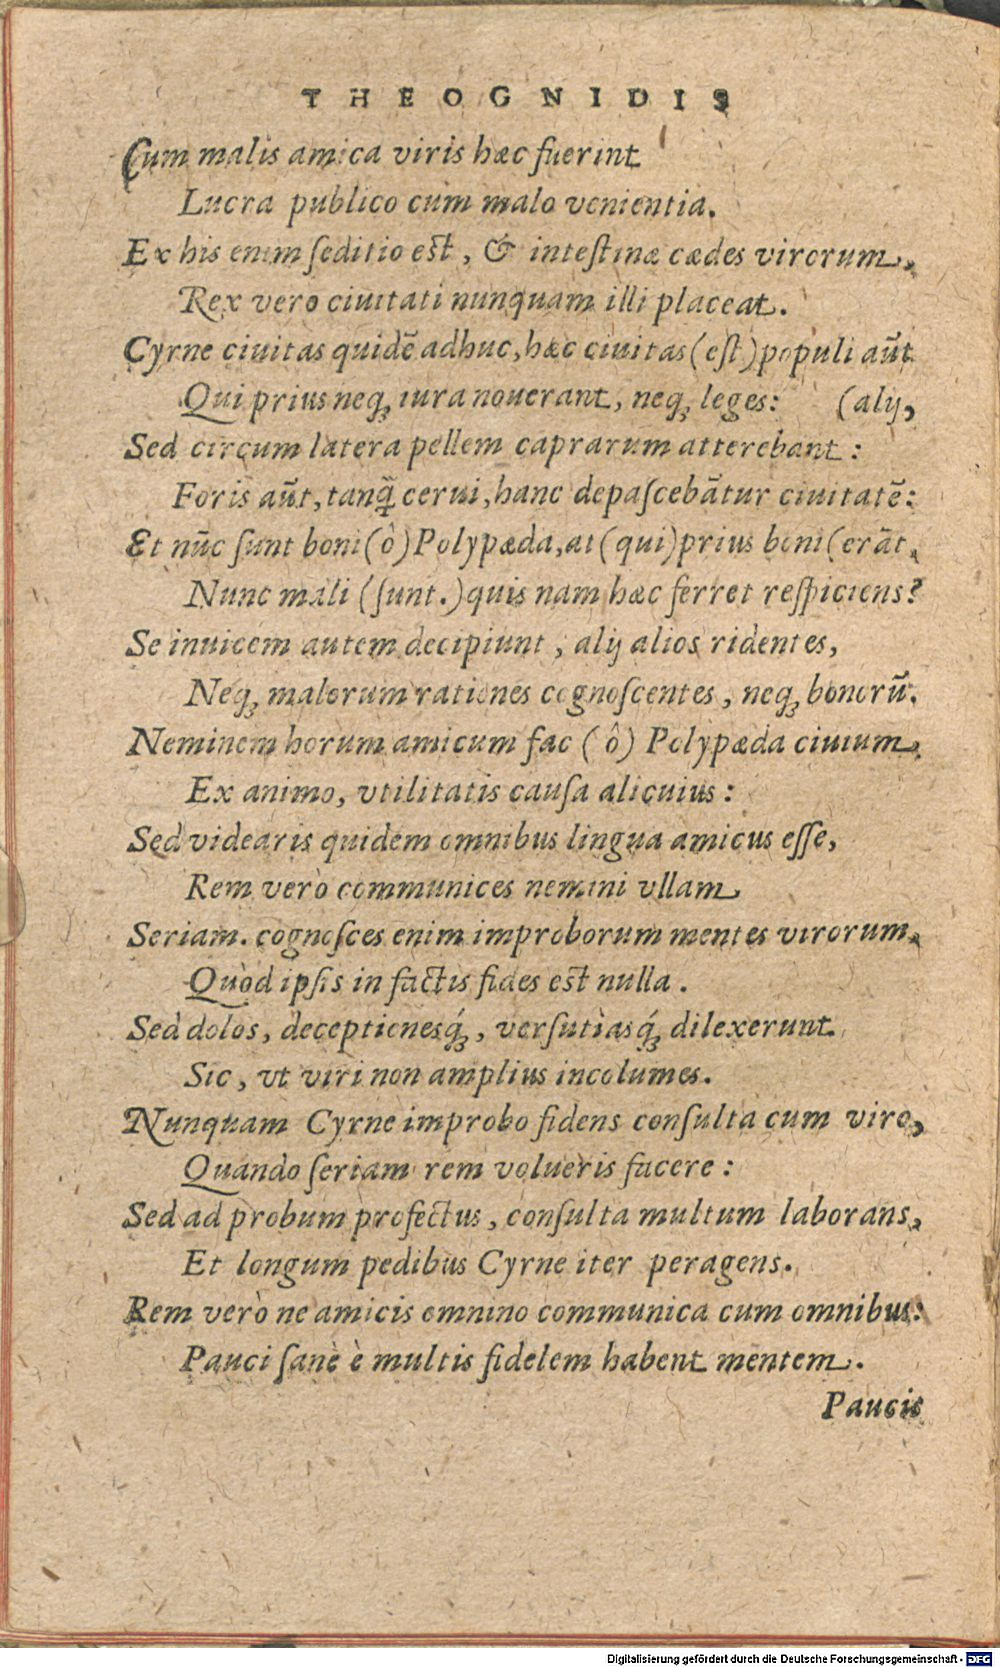 THEOGNIDIS
Cum malis amica viris hæc fuerint
Lucra publico cum malo venientia.
Ex his enim ſeditio eſt, & inteſtinæ cædes virorum,
Rex vero ciuitati nunquam illi placeat.
Cyrne ciuitas quidẽ adhuc, hæc ciuitas (eſt) populi aũt
Qui prius neqꝫ iura nouerant, neqꝫ leges: (alij,
Sed circum latera pellem caprarum atterebant:
Foris aũt, tanq̃ cerui, hanc depaſcebãtur ciuitatẽ:
Et nũc ſunt boni (ô) Polypæda, at (qui) prius boni (erãt,
Nunc mali (ſunt.) quis nam hæc ferret reſpiciens?
Se inuicem autem decipiunt, alij alios ridentes,
Neqꝫ malorum rationes cognoſcentes, neqꝫ bonorũ.
Neminem horum amicum fac (ô) Polypæda ciuium,
Ex animo, vtilitatis cauſa alicuius:
Sed videaris quidem omnibus lingua amicus eſſe,
Rem verò communices nemini vllam
Seriam. cognoſces enim improborum mentes virorum,
Quòd ipſis in factis fides eſt nulla.
Sed dolos, deceptionesq́ꝫ, verſutiasq́ꝫ dilexerunt
Sic, vt viri non amplius incolumes.
Nunquam Cyrne improbo fidens conſulta cum viro,
Quando ſeriam rem volueris facere:
Sed ad probum profectus, conſulta multum laborans,
Et longum pedibus Cyrne iter peragens.
Rem verò ne amicis omnino communica cum omnibus:
Pauci ſanè è multis fidelem habent mentem.
Paucis
Digitalisierung gefördert durch die Deutsche Forschungsgemeinschaft - DFG